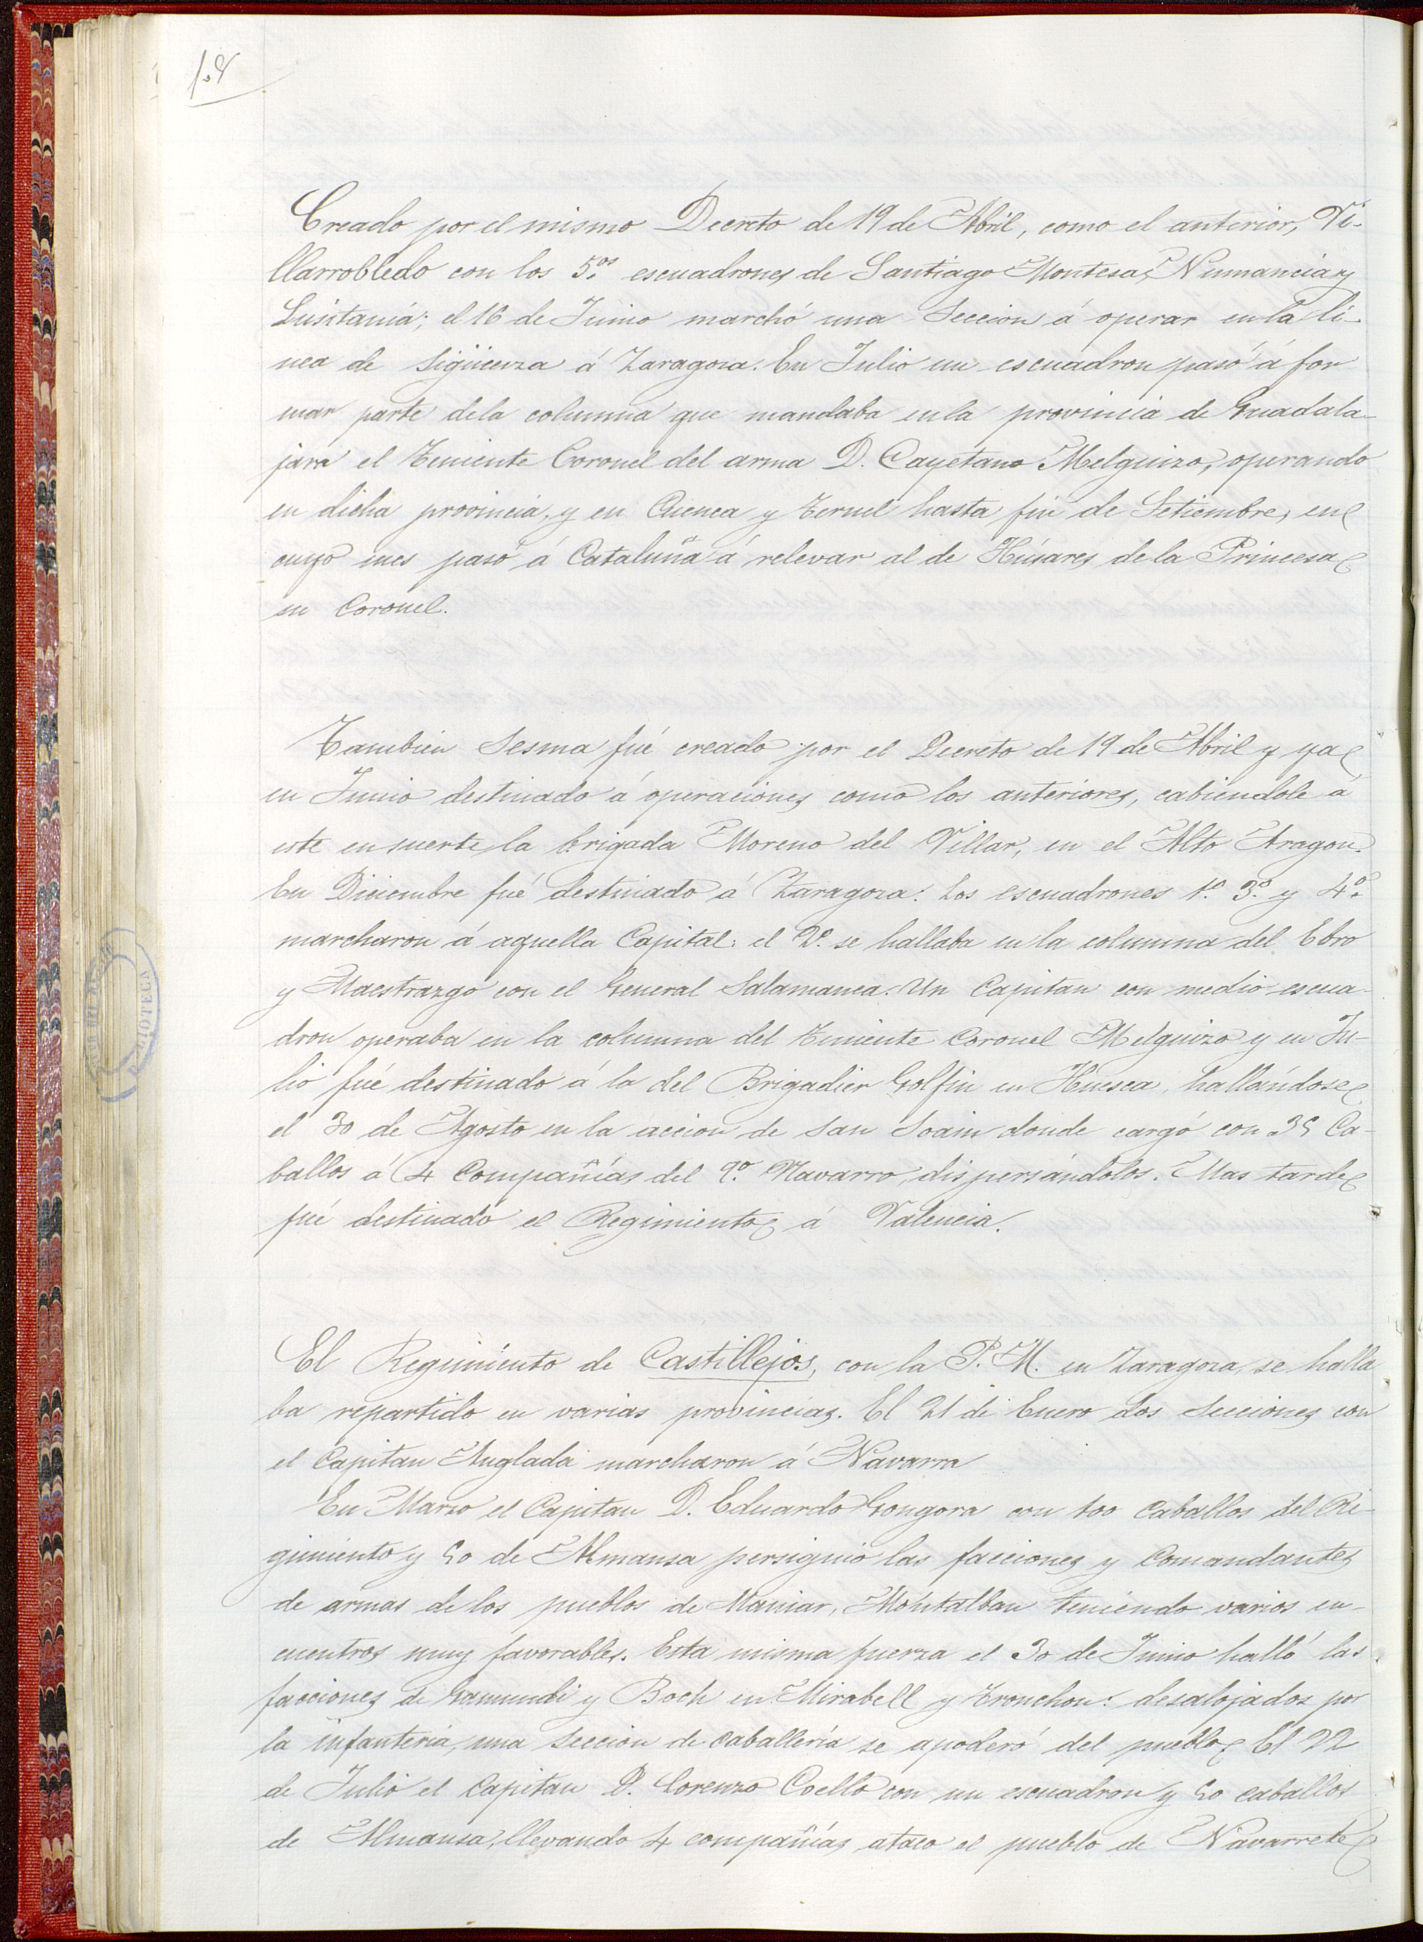 Creado por el mismo Decreto de 19 de Abril, como el anterior, Vi-
llarrobledo con los 5.os escuadrones de Santiago Montesa, Numancia y
Lusitania; el 16 de Junio marchó una Seccion á operar en la li-
nea de Sigüenza á Zaragoza. En Julio un escuadron pasó á for
mar parte de la columna que mandaba en la provincia de Guadala-
jara el Teniente Coronel del arma D. Cayetano Melguizo, operando
en dicha provincia, y en Cuenca y Teruel hasta fin de Setiembre, en
cuyo mes pasó á Cataluña á relevar al de Húsares de la Princesa
su Coronel.
Tambien Sesma fué creado por el Decreto de 19 de Abril y ya
en Junio destinado á operaciones como los anteriores, cabiendole á
este en suerte la brigada Moreno del Villar, en el Alto Aragon.
En Diciembre fué destinado á Zaragoza: Los escuadrones 1.º 3.º y 4.º
marcharon á aquella Capital: el 2.º se hallaba en la columna del Ebro
y Maestrazgo con el General Salamanca. Un Capitan con medio escua-
dron operaba en la columna del Teniente Coronel Melguizo y en Ju-
lio fué destinado á la del Brigadier Golfin en Huesca, hallándose
el 30 de Agosto en la accion de San Soain donde cargó con 35 Ca-
ballos á 4 Compañías del 2.º Navarro, dispersándolos. Mas tarde
fué destinado el Regimiento á Valencia.
El Regimiento de Castillejos, con la P. M. en Zaragoza, se halla
ba repartido en varias provincias. El 21 de Enero dos Secciones con
el Capitan Anglada marcharon á Navarra
En Marzo el Capitan D. Eduardo Gongora con 100 Caballos del Re-
gimiento y 50 de Almansa persiguió las facciones y Comandantes
de armas de los pueblos de Maniar, Montalban teniendo varios en-
cuentros muy favorables. Esta misma fuerza el 30 de Junio halló las
facciones de Gamundi y Boch en Mirabell y Tronchon: desalojados por
la infantería, una Seccion de Caballería se apoderó del pueblo. El 22
de Julio el Capitan D. Lorenzo Coello con un escuadron y 50 caballos
de Almansa, llevando 4 compañías, ataco el pueblo de Navarrete